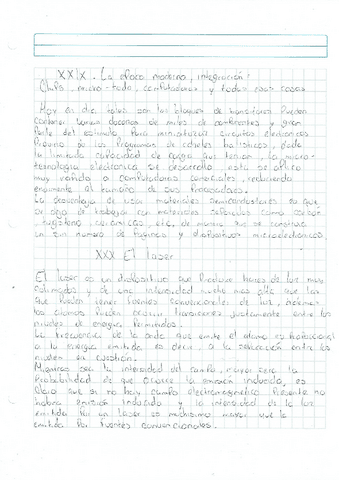 XXIX. La época moderna, integración:
Chips, micro-todo, computadoras y todas esas cosas
Hoy en día, tales son los bloques de transistores Pueden
contener varias docenas de miles de componentes y gran
Parte del estímulo Para miniaturizar circuitos electrónicos
Provino de los Programas de cohetes balísticos, dada
la limitada capacidad de carga que tenían, la micro-
tecnología electrónica se desarrolló, esta se aplicó
muy rápido a computadoras comerciales, reduciendo
enormemente el tamaño de sus Procesadores.
La tecnología de usar materiales semiconductores ya que
se deja de trabajar con materiales
tungsteno, cerámicas, etc, de manera que se construya
un sin número de y dispositivos microelectrónicos
XXX El laser
El laser es un dispositivo que Produce haces de luz muy
de una intensidad mucho más alta que las
que Pueden tener fuentes convencionales de luz, además
los átomos Pueden ocurrir transiciones justamente entre los
niveles de energía Permitidos.
La frecuencia de la onda que emite el átomo es Proporcional
a la energía emitida, es decir a la separación entre los
niveles en cuestión.
Mientras sea la intensidad del campo, mayor será la
Probabilidad de que ocurra la emisión inducida, es
claro que si no hay campo electromagnético Presente no
habrá emisión inducida y la intensidad de la luz
emitida Por un laser es muchísimo mayor que la
emitida Por fuentes convencionales.